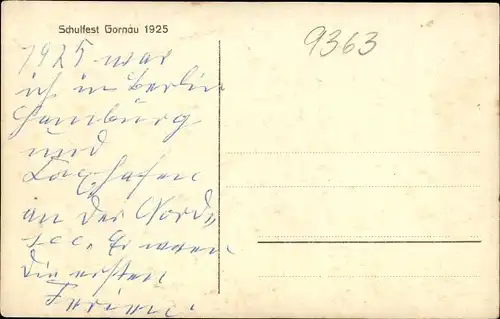 Schulfest Gornau 1925
9363
1925 war
ich in Berlin
Hamburg
und
Cuxhafen
an der Nord„
see. Es waren
die ersten
Ferien.